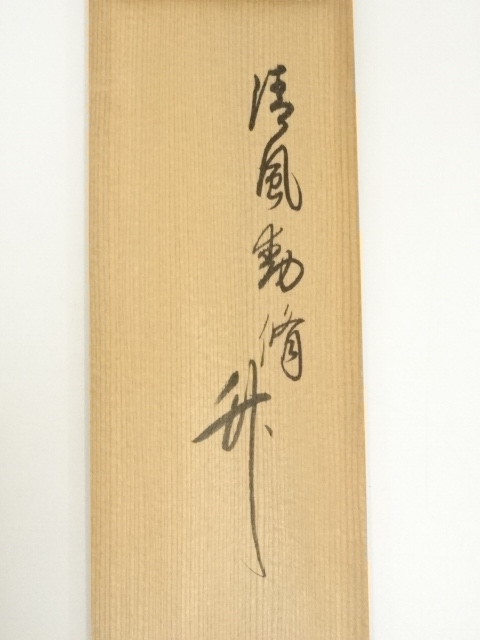 清風動脩竹